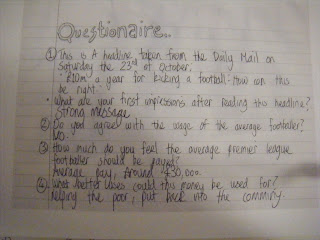 Questionaire..
① This is A headline taken from the Daily Mail on
Saturday the 23rd of October.
'£10m' a year for kicking a football: How can this
be right'
• What are your first impressions after reading this headline?
Strong message
② Do you agree with the wage of the average footballer?
No.
③ How much do you feel the average premier league
footballer should be payed?
Average pay, around £30,000.
④ What better uses could this money be used for?
Helping the poor, put back into the